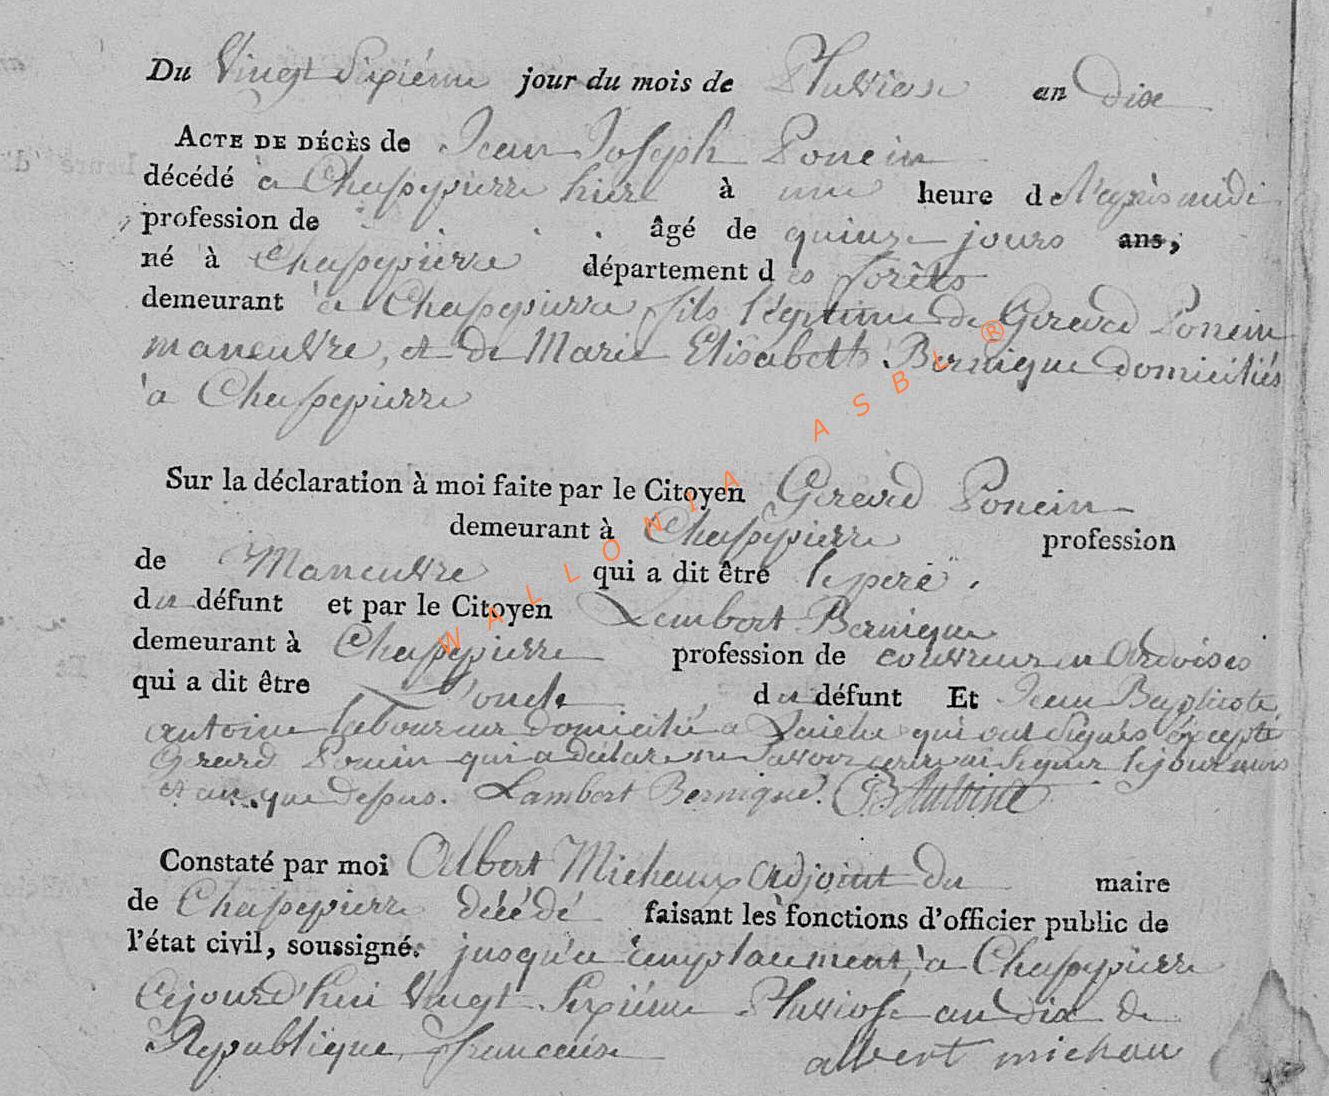 Du Vingt Sixiéme jour du mois de Pluviose an Dix
ACTE DE DÉCÈS de Jean Joseph Poncin
décédé à Chassepierre hier à une heure de l'après midi
profession de . . . . âgé de quinze jours ans,
né à Chassepierre département des forêts
demeurant à Chassepierre fils légitime de Gerard Poncin
maneuvre, et de Marie Elisabeth Bernique domiciliés
à Chassepierre
Sur la déclaration à moi faite par le Citoyen Gerard Poncin
demeurant à Chassepierre profession
de Maneuvre qui a dit être le pere
du défunt et par le Citoyen Lambert Bernique
demeurant à Chassepierre profession de couvreur en Ardoises
qui a dit être L'oncle du défunt Et Jean Baptiste
antoine laboureur domicilié a Laiche qui ont signés éxcepté
Gerard Poncin qui a déclaré ne savoir ecrire ni signer le jour mois
et an que dessus. Lambert Bernique. JB Antoine
Constaté par moi Albert Michaux adjoint du maire
de Chassepierre décédé faisant les fonctions d'officier public de
l'état civil, soussigné. jusqu'a remplacement, à Chassepierre
Cejourd'hui Vingt Sixiéme Pluviose an dix de
République francaise albert michau
WALLONIA ASBL ®